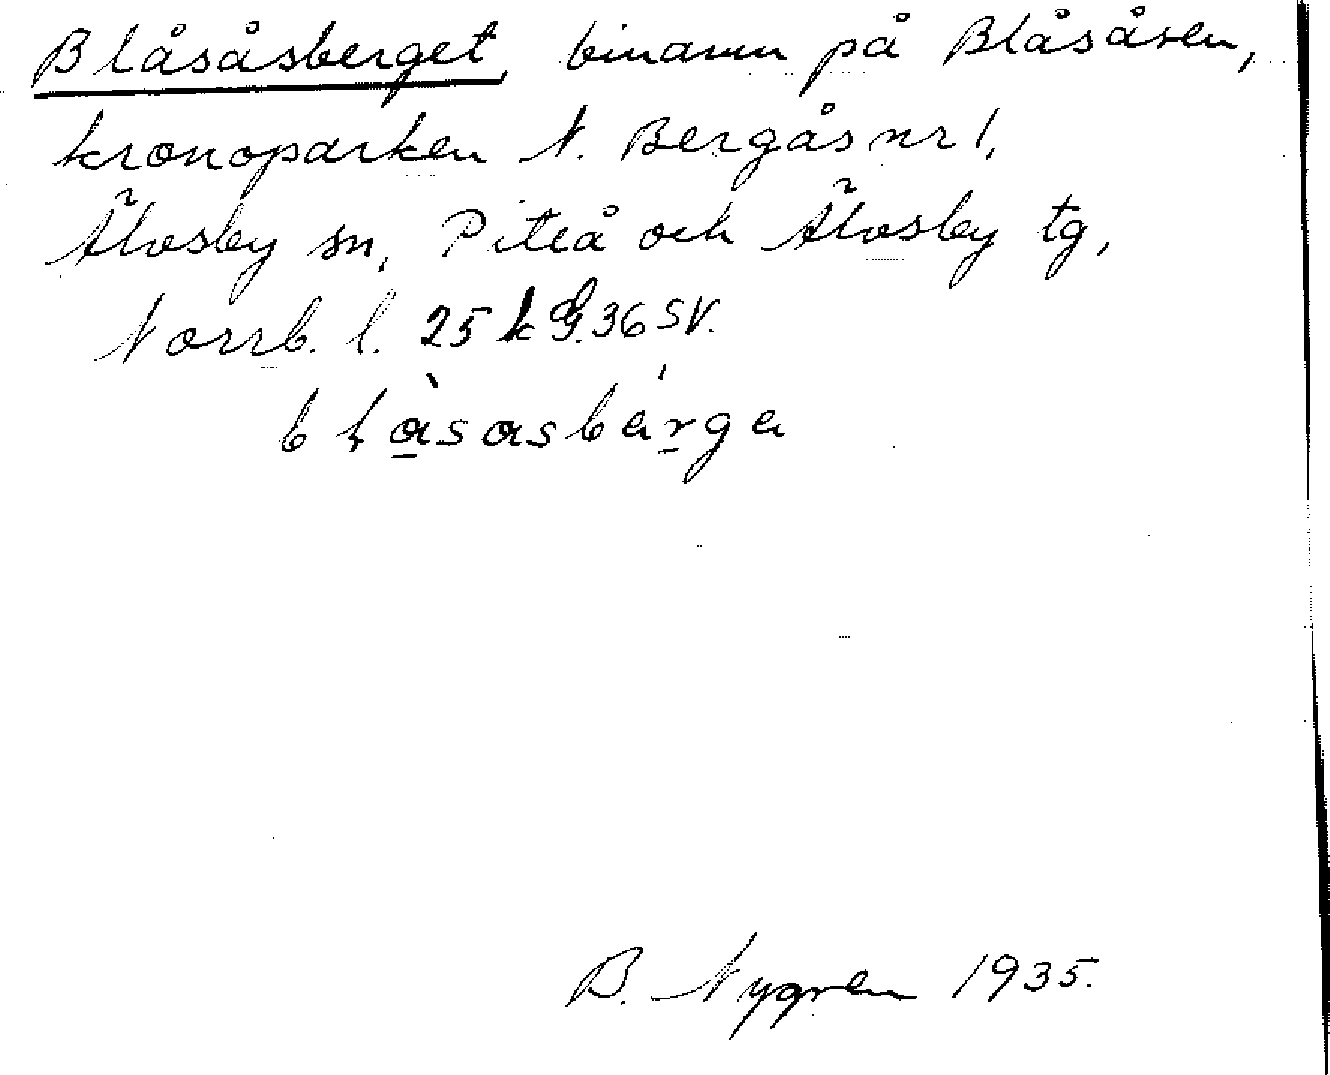 Blåsåsberget, binamn på Blåsåsen,
kronoparken N. Bergås nr 1,
Älvsby sn, Piteå och Älvsby tg,
Norrb. l. 25 k 36 SV.
blåsasbärge
B. Nygren 1935.